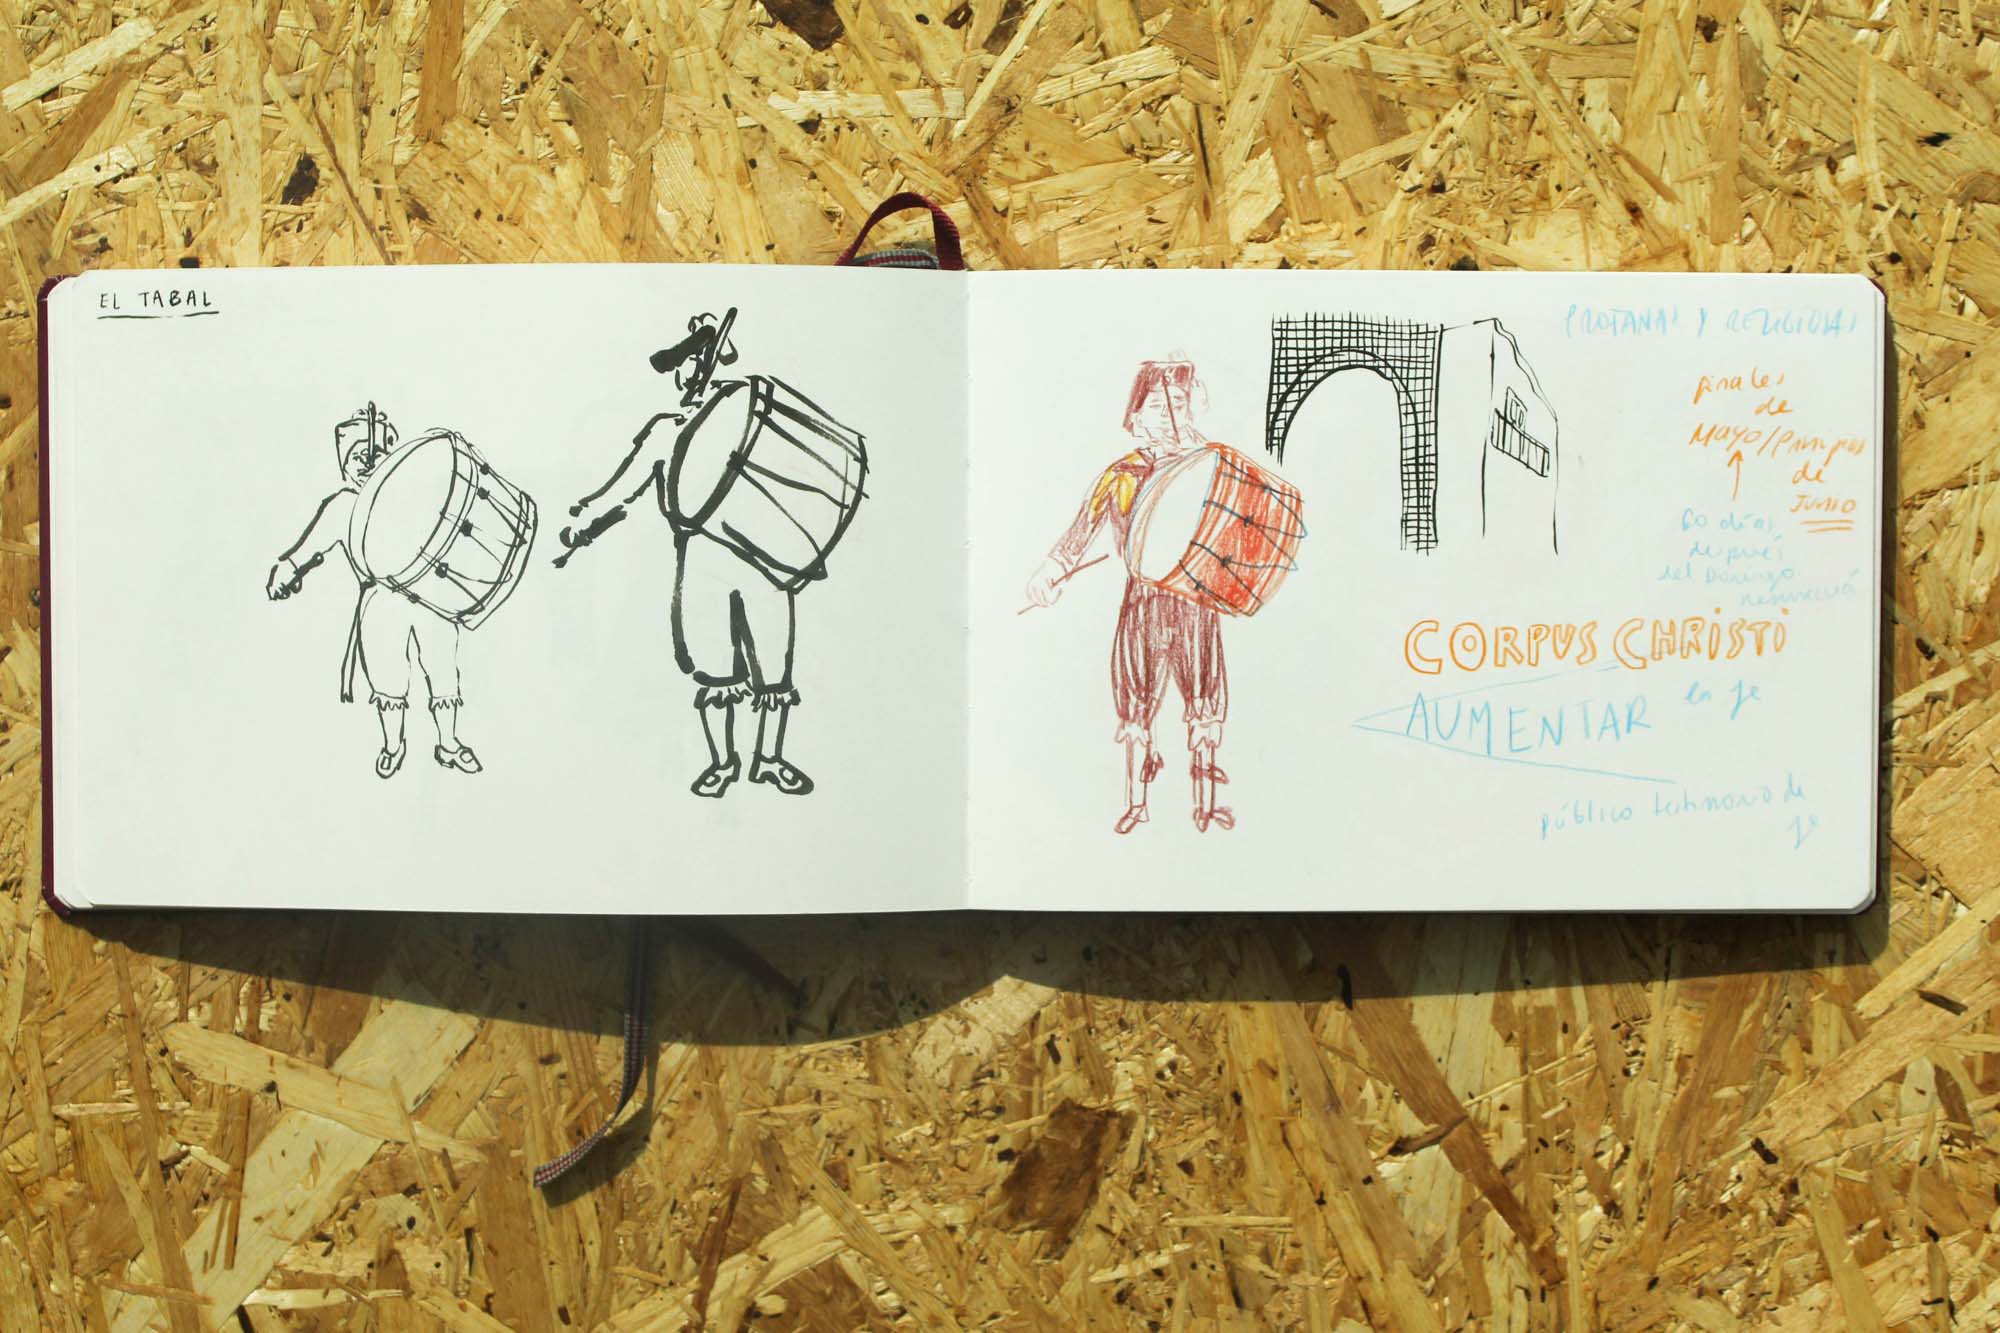 EL TABAL
PROFANAS Y RELIGIOSAS
finales
de
MAYO/Principios
de
JUNIO
60 días
después
del Domingo
resurrección
CORPUS CHRISTI
AUMENTAR la fe
público testimonio de
fe